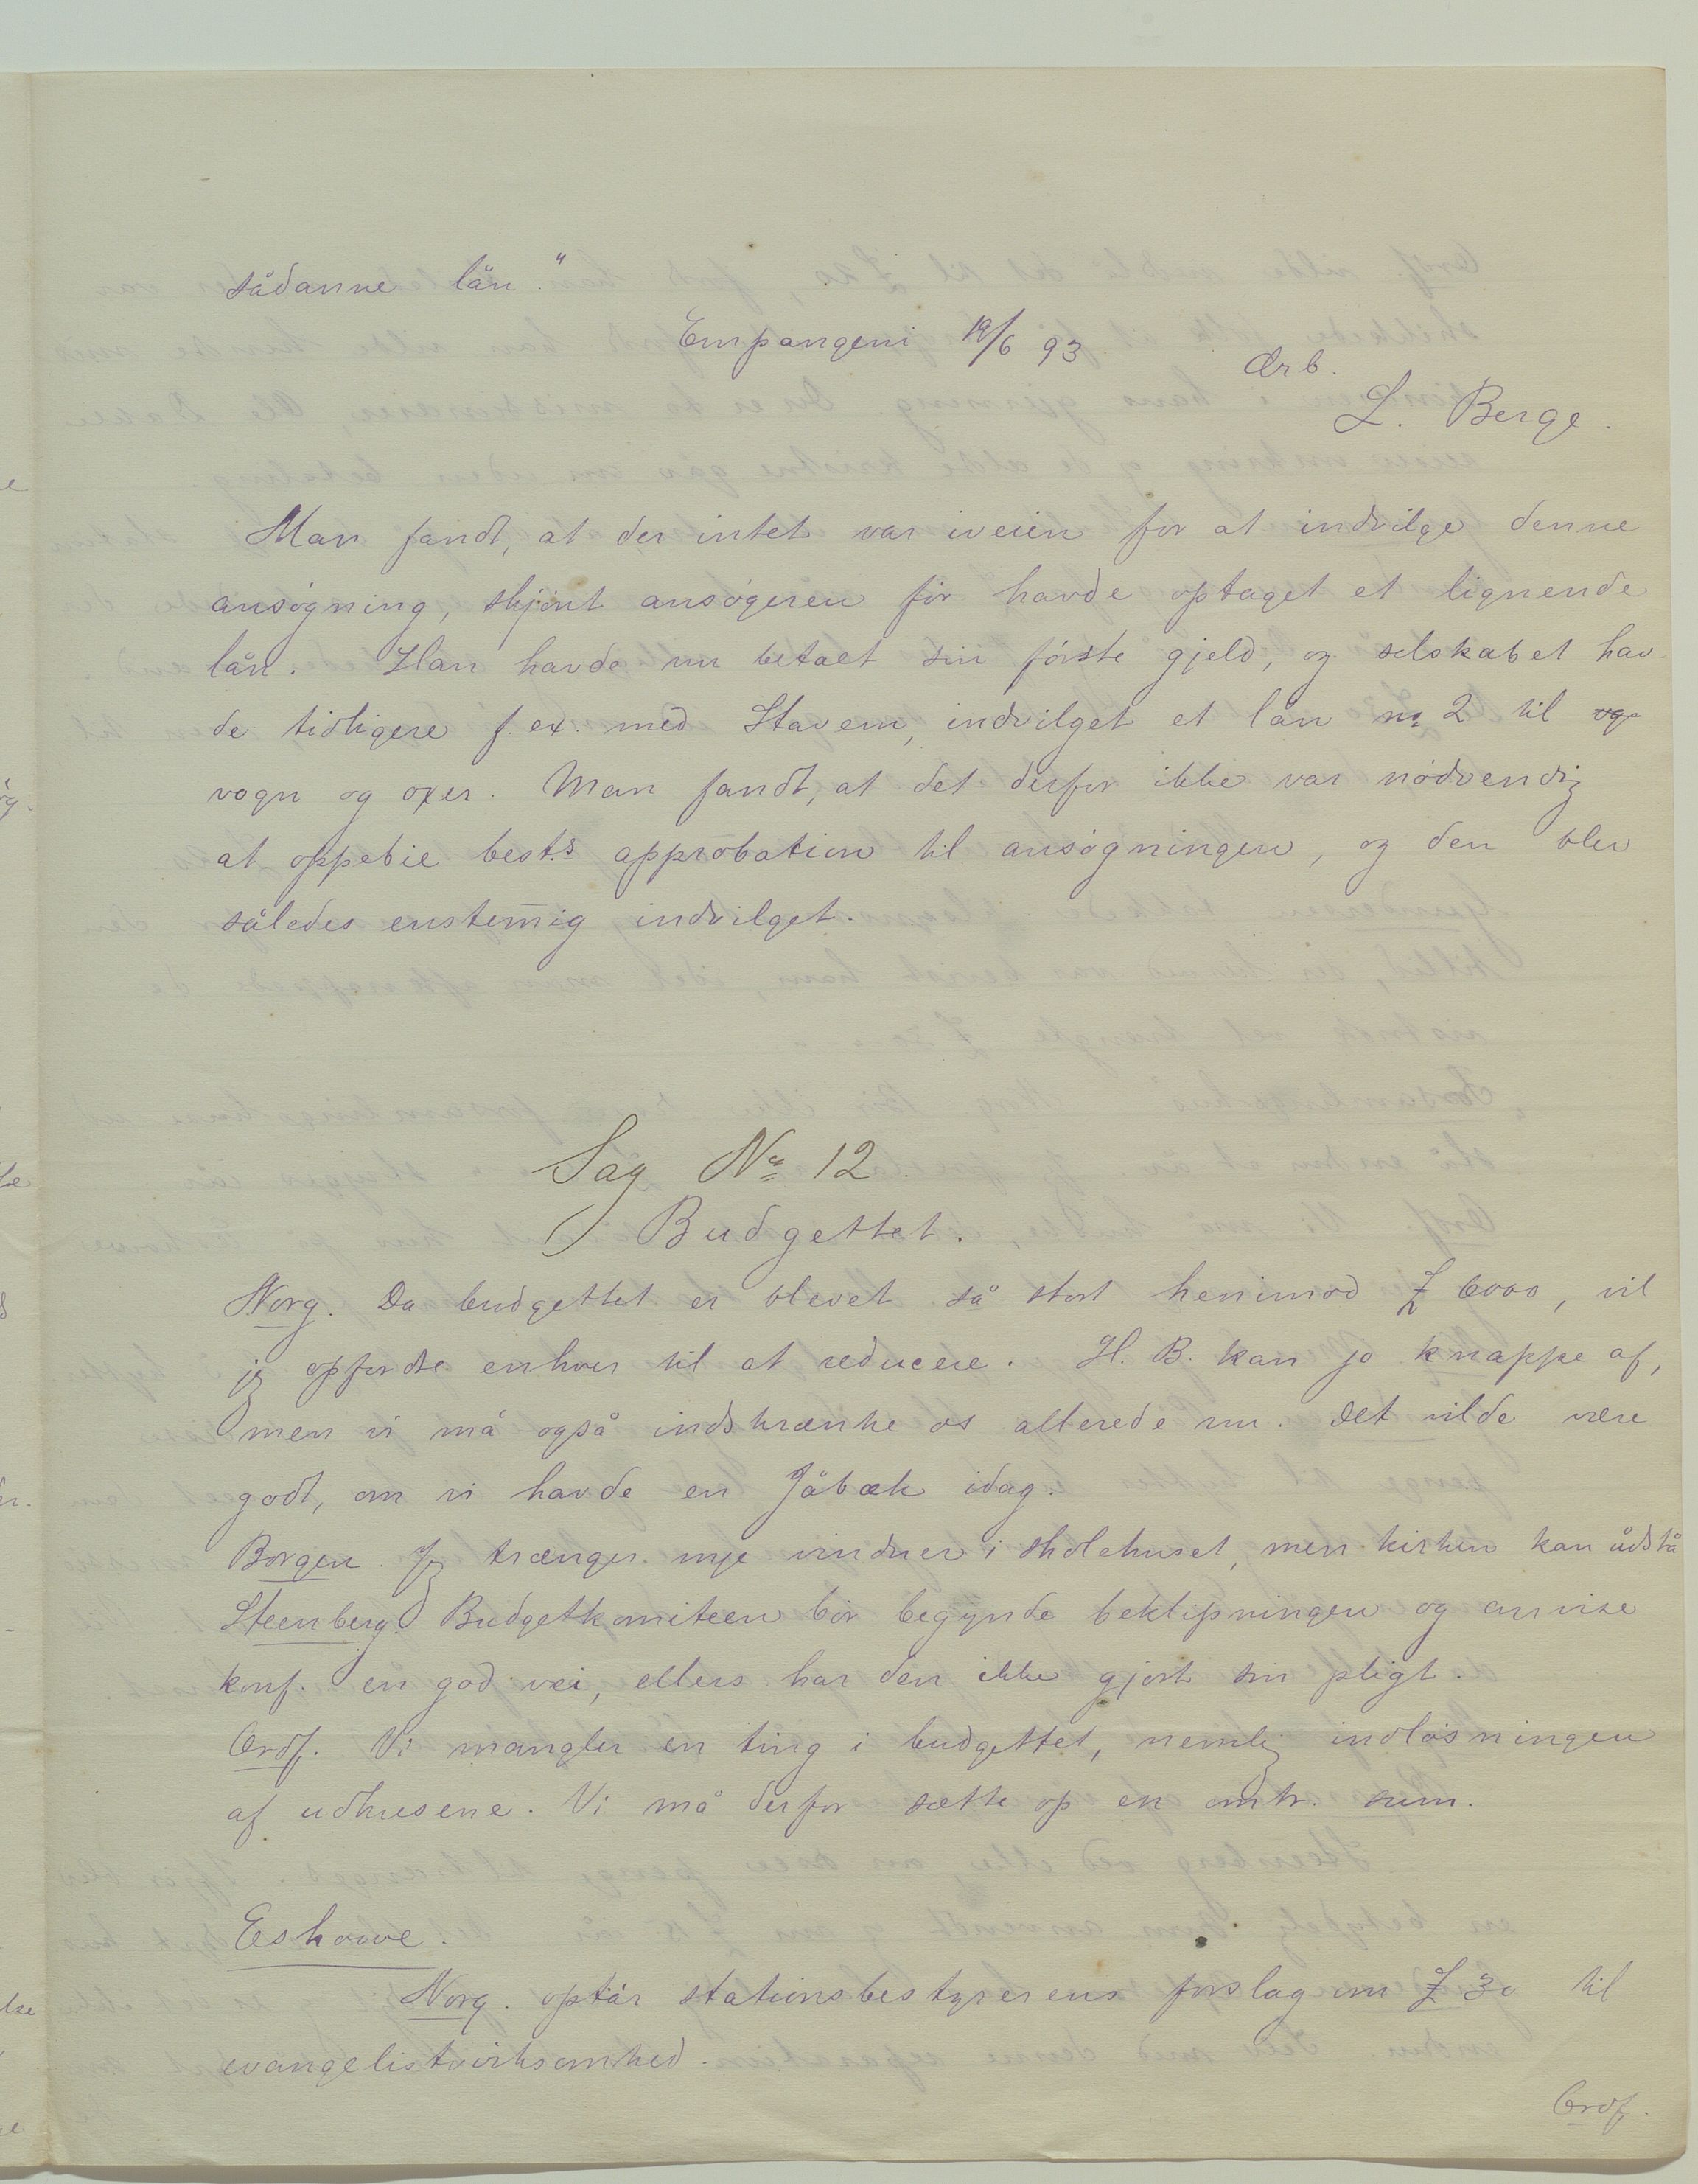 sådanne lån."
Empangeni 19/6 93
ærb.
L. Berge.
Man fandt, at der intet var iveien for at indvilge denne
ansøgning, skjønt ansøgeren før havde optaget et lignende
lån. Han havde nu betalt sin første gjeld, og selskabet hav
de tidligere f. ex. med Stavem, indvilget et lån no 2 til og
vogn og oxer. Man fandt, at det derfor ikke var nødvendig
at oppebie best.s approbation til ansøgningen, og den blev
således enstem̄ig indvilget.
Sag No 12.
Budgettet.
Norg. Da budgettet er blevet så stort henimod £ 6000, vil
jeg opfordre enhver til at reducere. H. B. kan jo knappe af,
men vi må også indskrænke os allerede nu. Det vilde være
godt, om vi havde en Jåbæk idag.
Borgen. Jeg trænger nye vinduer i skolehuset, men kirken kan udstå
Steenberg. Budgetkomiteen bør begynde beklipningen og anvise
konf. en god vei, ellers har den ikke gjort sin pligt.
Ordf. Vi mangler en ting i budgettet, nemlig indløsningen
af udhusene. Vi må derfor sætte op en omtr. sum.
Eshowe.
Norg. optår stationsbestyrerens forslag om £ 30 til
evangelistvirksomhed.
Ordf.